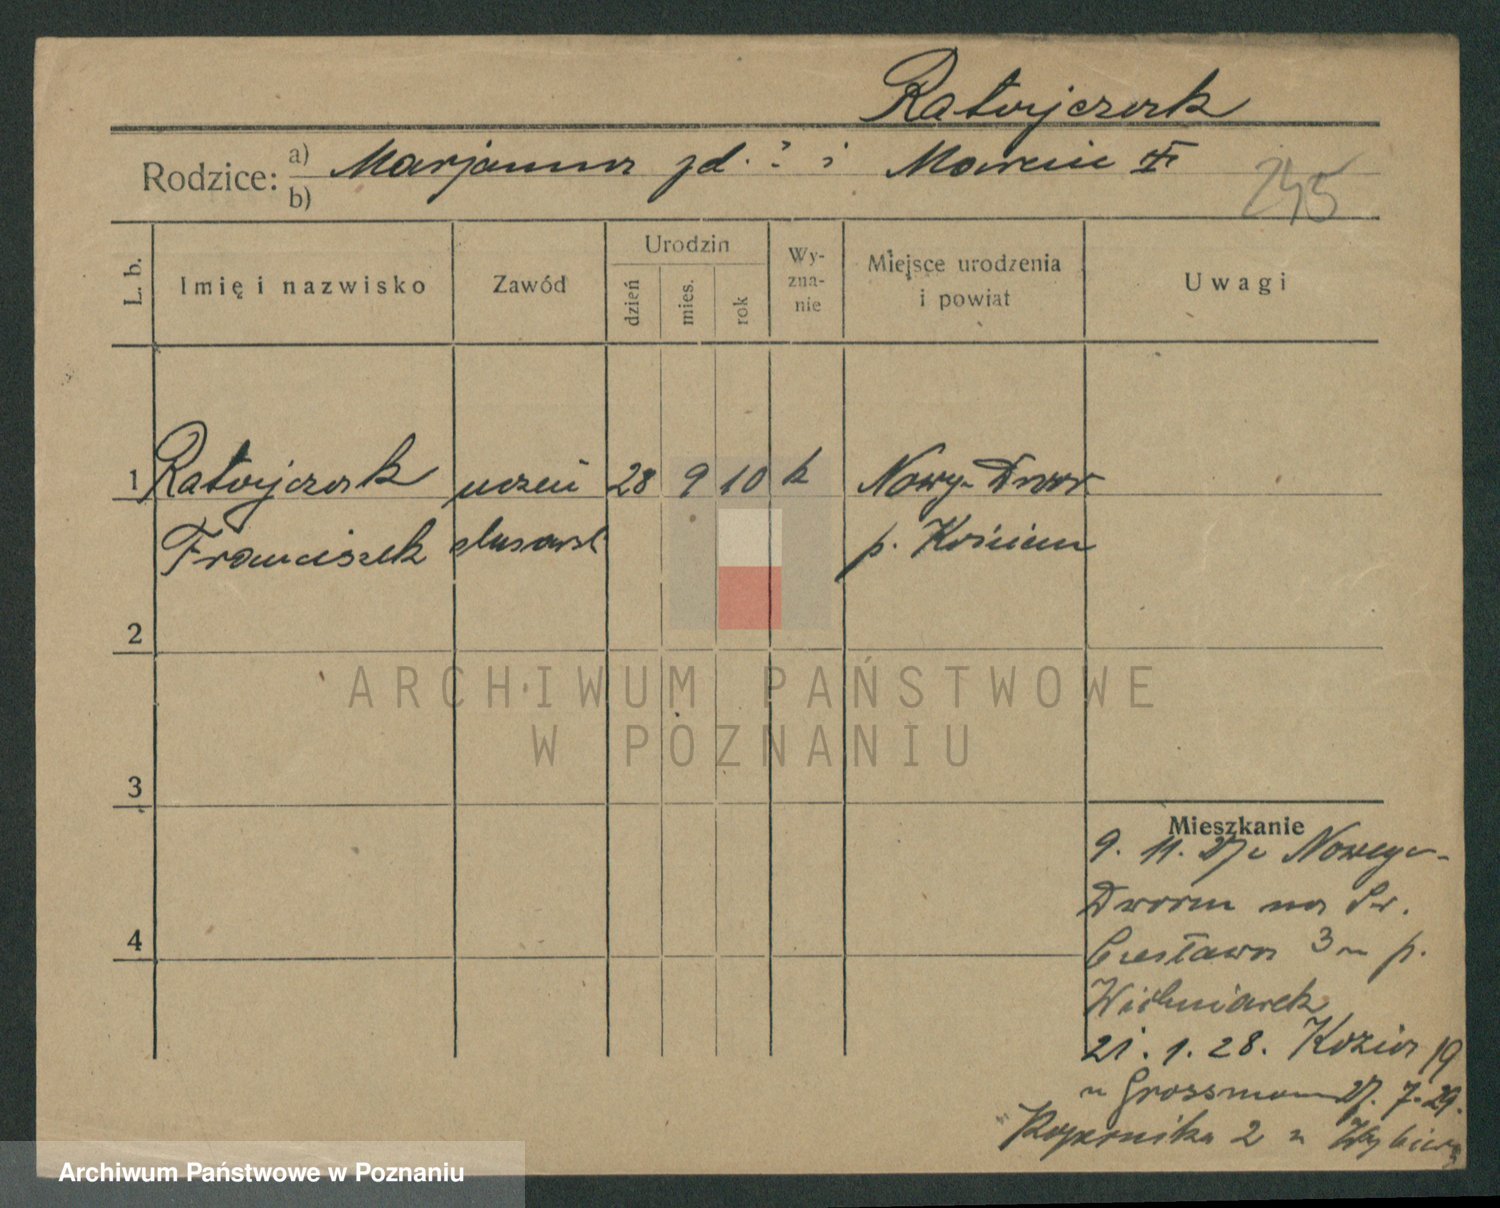 Ratajczak
Rodzice: a) Marjanna zd. ? i Marcin
b)
245
L. b.
Imię i nazwisko
Zawód
Urodzin
dzień
mies.
rok
Wy-
zna-
nie
Miejsce urodzenia
i powiat
Uwagi
1 Ratajczak uczeń 28 9 10 k Nowy-Dwór
Franciszek ślusarsk p. Kościan
2
3
4
Mieszkanie
9. 11. 27 z Nowego-
Dworu na Św.
Czesława 3 u p.
Woźniarek
21. 1. 28. Kozia 19
u Grossmann 27. 7. 29.
Kopernika 2 u
ARCHIWUM PAŃSTWOWE
W POZNANIU
Archiwum Państwowe w Poznaniu